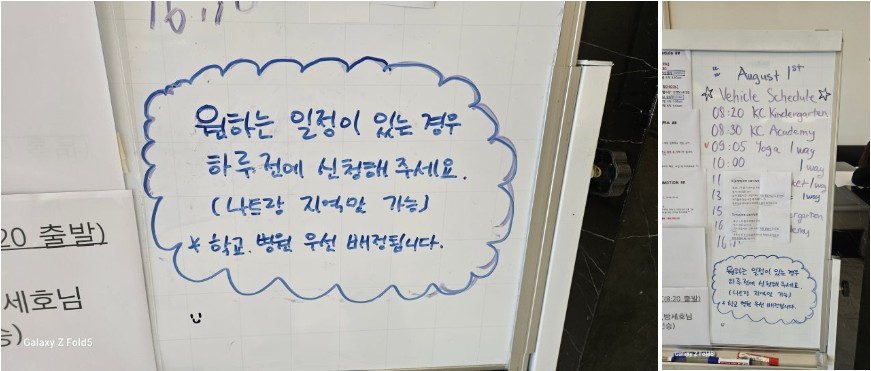 원하는 일정이 있는 경우
하루 전에 신청해 주세요.
(나트랑 지역만 가능)
* 학교. 병원 우선 배정됩니다.
20 출발)
세호님
Galaxy Z Fold5
August 1st
☆ Vehicle Schedule ☆
08:20 KC Kindergarten
08:30 KC Academy
09:05 Yoga 1 way
10:00 1 way
11 1 way
13 1 way
15
16
16:
원하는 일정이 있는 경우
하루 전에 신청해 주세요.
(나트랑 지역만 가능)
* 학교 병원 우선 배정됩니다.
8:20 출발)
세호님
Galaxy Z Fold5